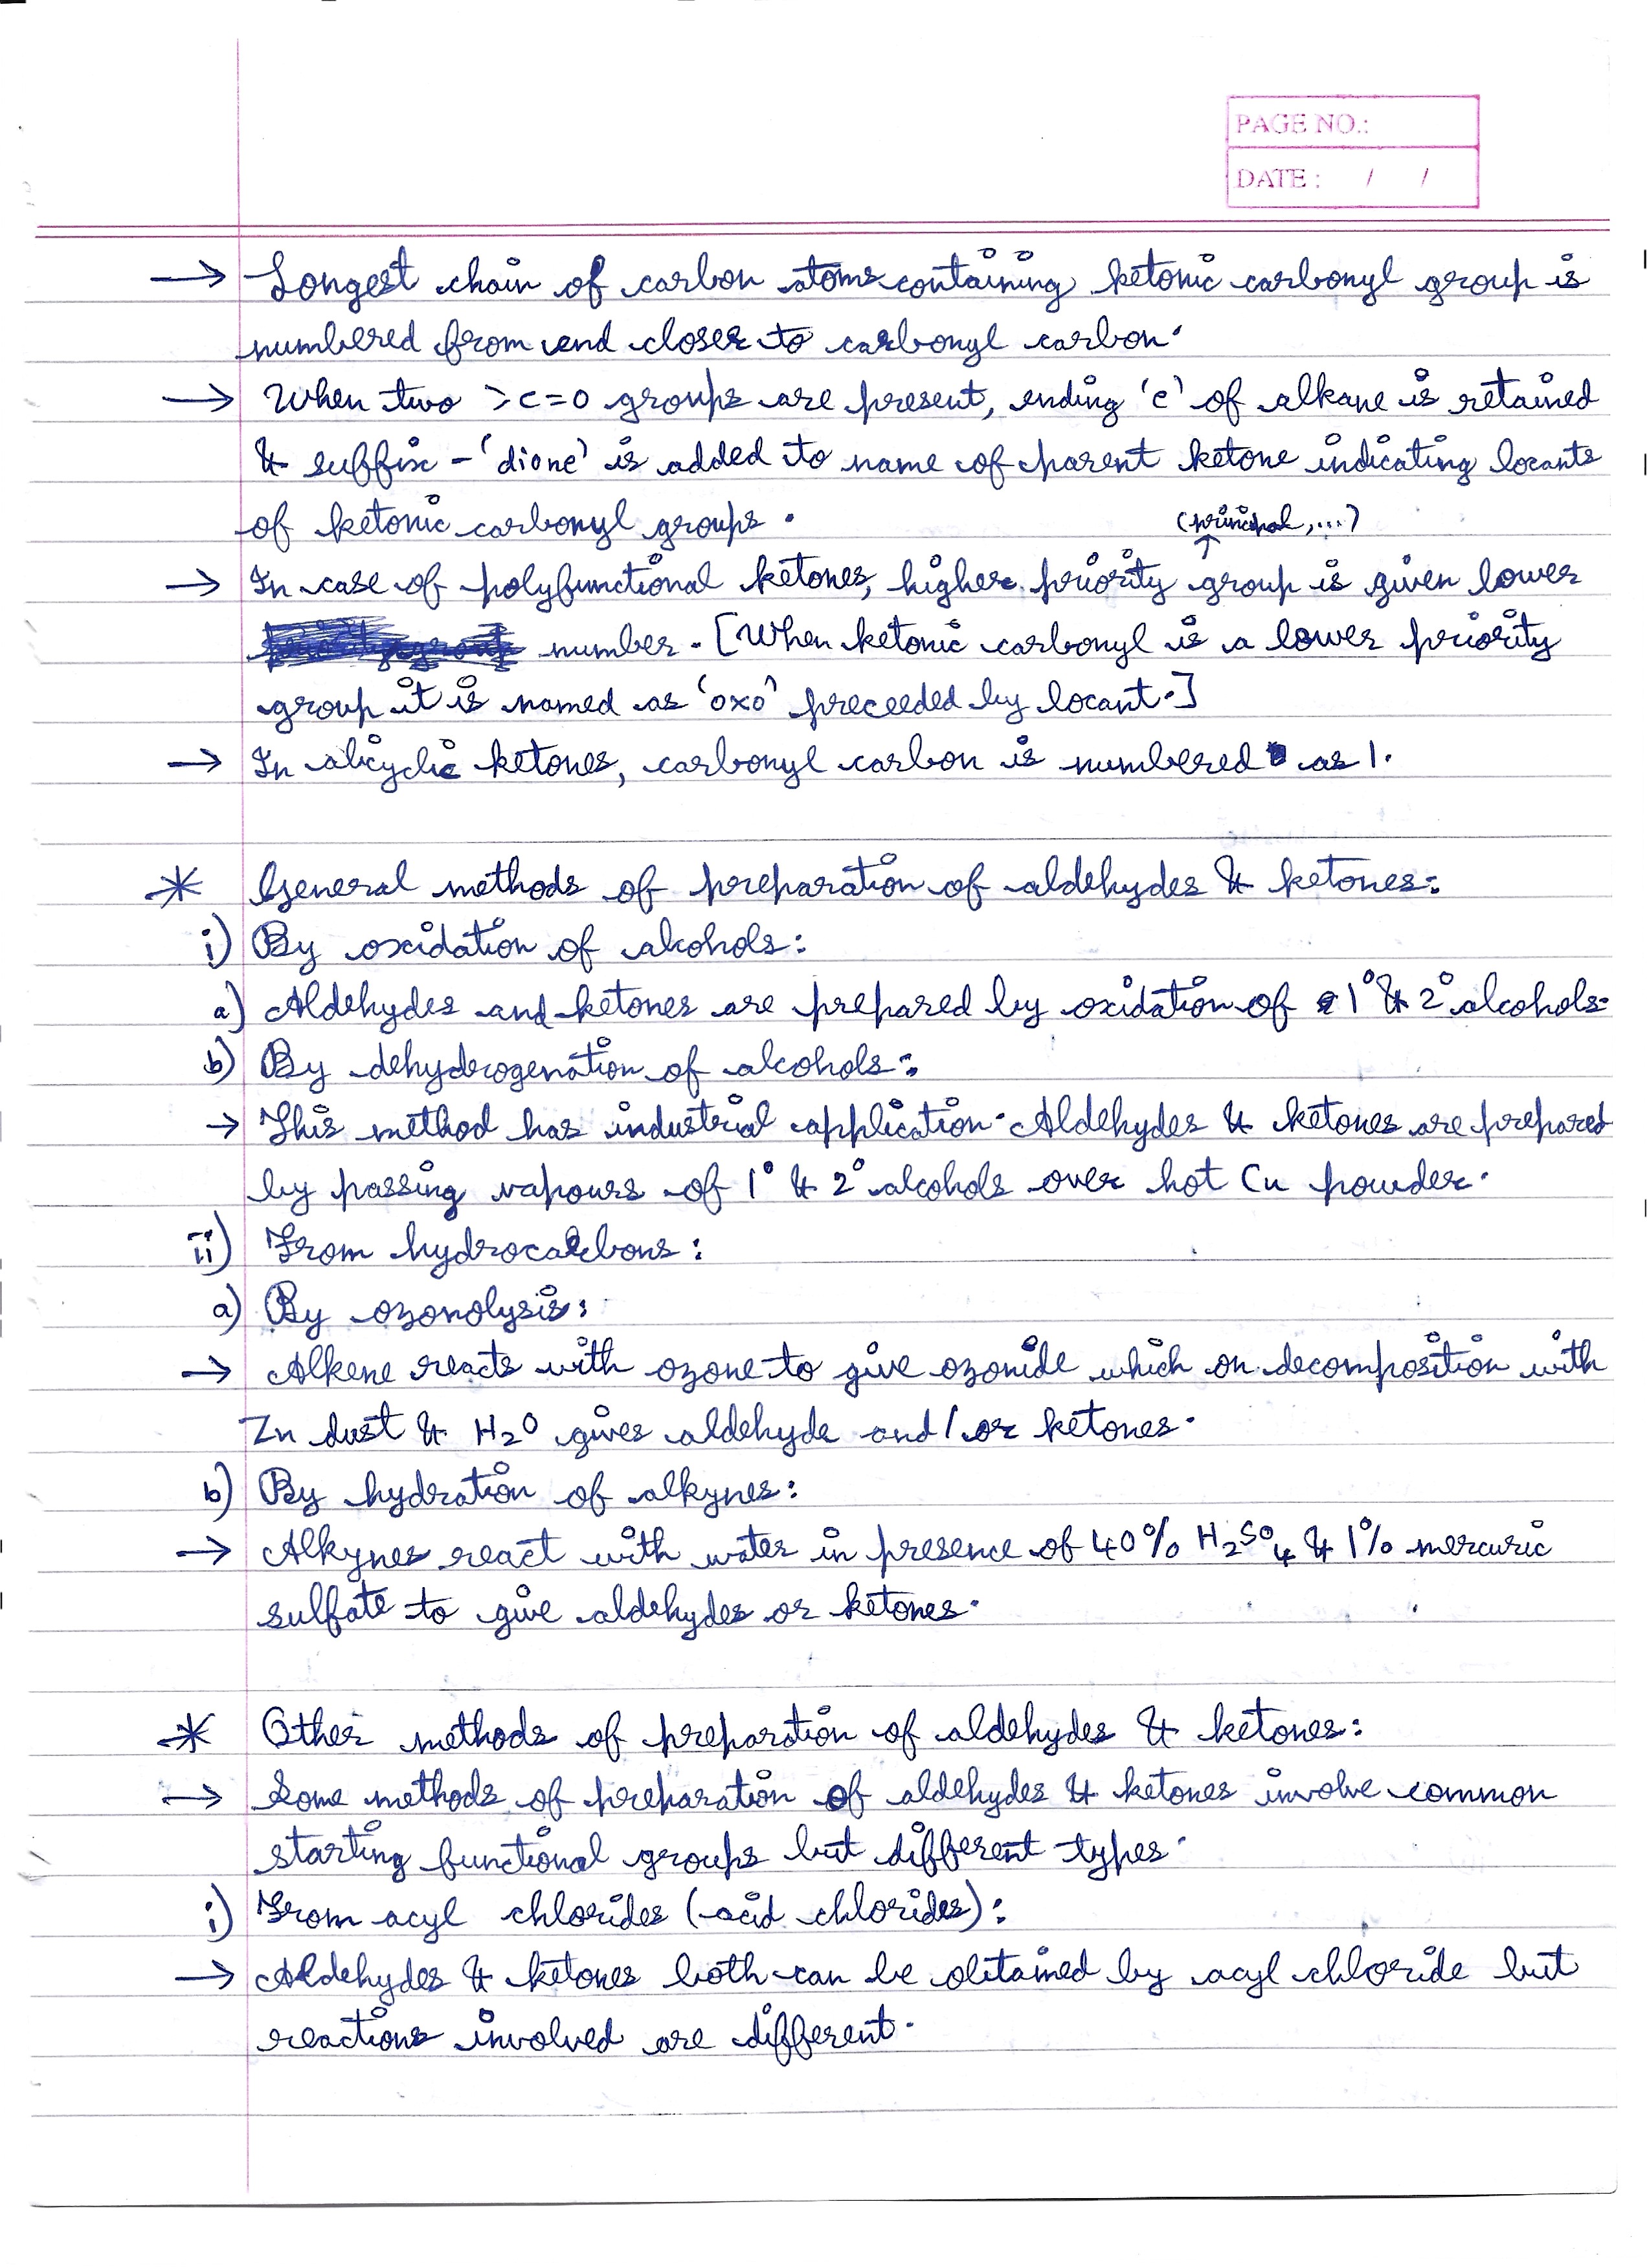 PAGE NO.:
DATE : / /
→ Longest chain of carbon atoms containing ketonic carbonyl group is
numbered from end closer to carbonyl carbon.
→ When two >c=o groups are present, ending 'e' of alkane is retained
& suffix - 'dione' is added to name of parent ketone indicating locants
of ketonic carbonyl groups.
(principal,...)
→ In case of polyfunctional ketones, higher priority ↑ group is given lower
number. [When ketonic carbonyl is a lower priority
group it is named as 'oxo' preceeded by locant.]
→ In alicyclic ketones, carbonyl carbon is numbered as 1.
* General methods of preparation of aldehydes & ketones:
i) By oxidation of alcohols:
a) Aldehydes and ketones are prepared by oxidation of 1° & 2° alcohols.
b) By dehydrogenation of alcohols:
→ This method has industrial application. Aldehydes & ketones are prepared
by passing vapours of 1° & 2° alcohols over hot Cu powder.
ii) From hydrocarbons:
a) By ozonolysis:
→ Alkene reacts with ozone to give ozonide which on decomposition with
Zn dust & H₂O gives aldehyde and/or ketones.
b) By hydration of alkynes:
→ Alkynes react with water in presence of 40% H₂SO₄ & 1% mercuric
sulfate to give aldehydes or ketones.
* Other methods of preparation of aldehydes & ketones:
→ Some methods of preparation of aldehydes & ketones involve common
starting functional groups but different types.
i) From acyl chlorides (acid chlorides):
→ Aldehydes & ketones both can be obtained by acyl chloride but
reactions involved are different.